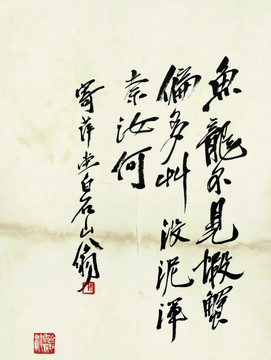 魚龍不見蝦蟹
偏多草没泥渾
奈汝何
寄萍堂白石山翁